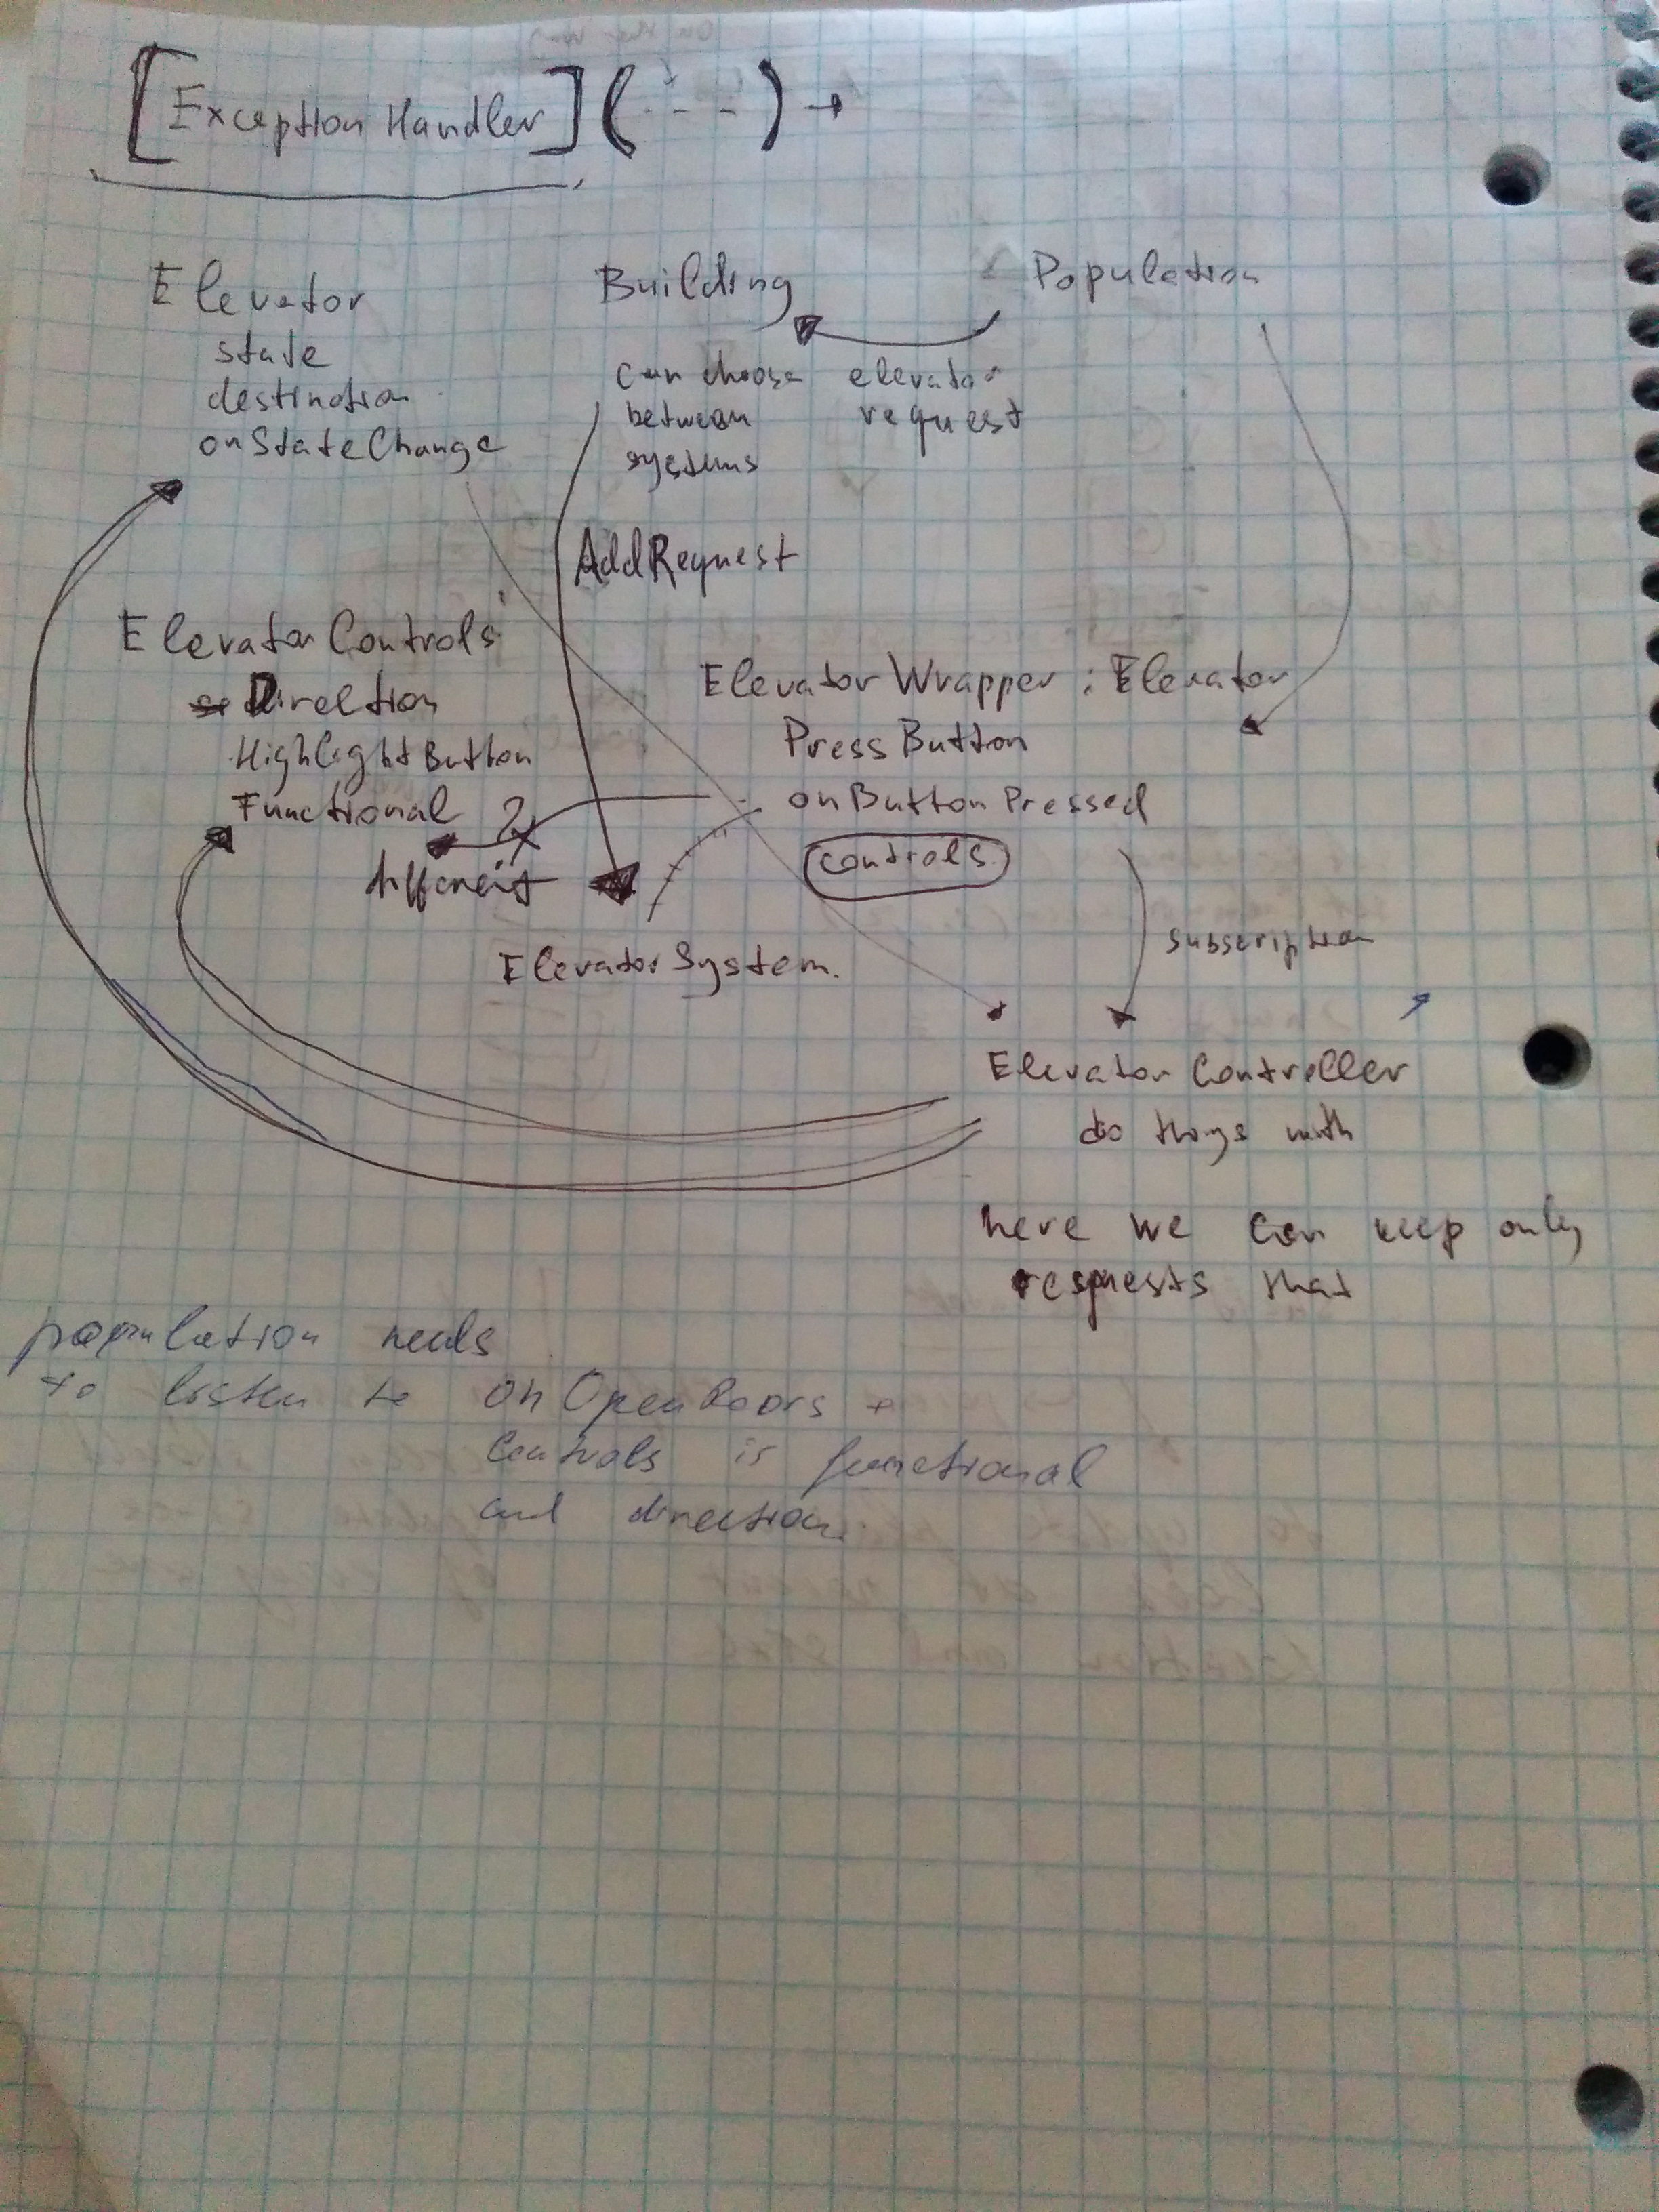 [Exception Handler] (- - -) →
Elevator
state
destination
onStateChange
Building
can choose
between
systems
Population
elevator
request
AddRequest
Elevator Controls
Direction
HighlightButton
Functional ?
different
Elevator Wrapper : Elevator
Press Button
onButtonPressed
controls
subscription
Elevator System.
Elevator Controller
do things with
here we can keep only
requests that
population needs
to listen to onOpenDoors +
Controls is functional
and direction.